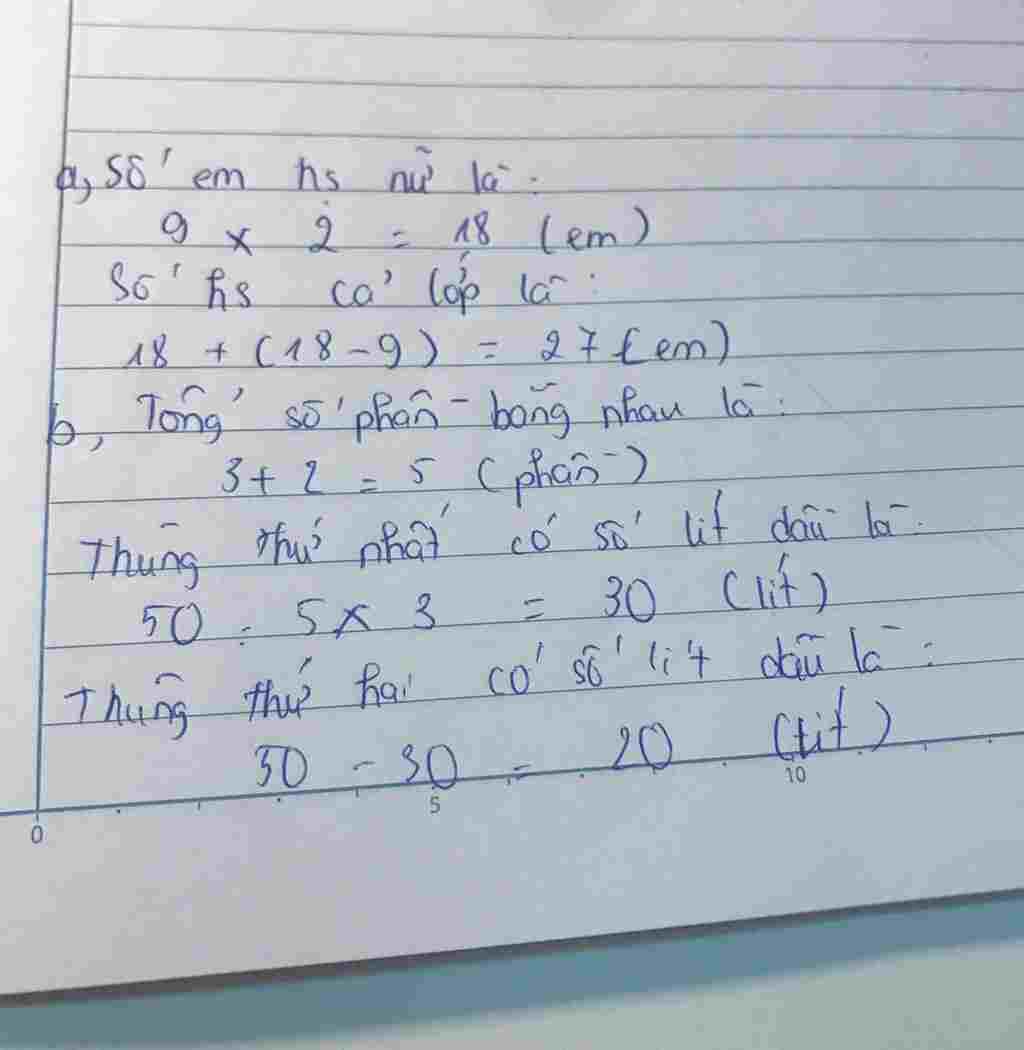 a, Số em hs nữ là :
9 x 2 = 18 (em)
Số hs cả lớp là :
18 + (18 - 9) = 27 (em)
b, Tổng số phần bằng nhau là :
3 + 2 = 5 (phần)
Thùng thứ nhất có số lít dầu là :
50 : 5 x 3 = 30 (lít)
Thùng thứ hai có số lít dầu là :
50 - 30 = 20 (lít)
0 5 10